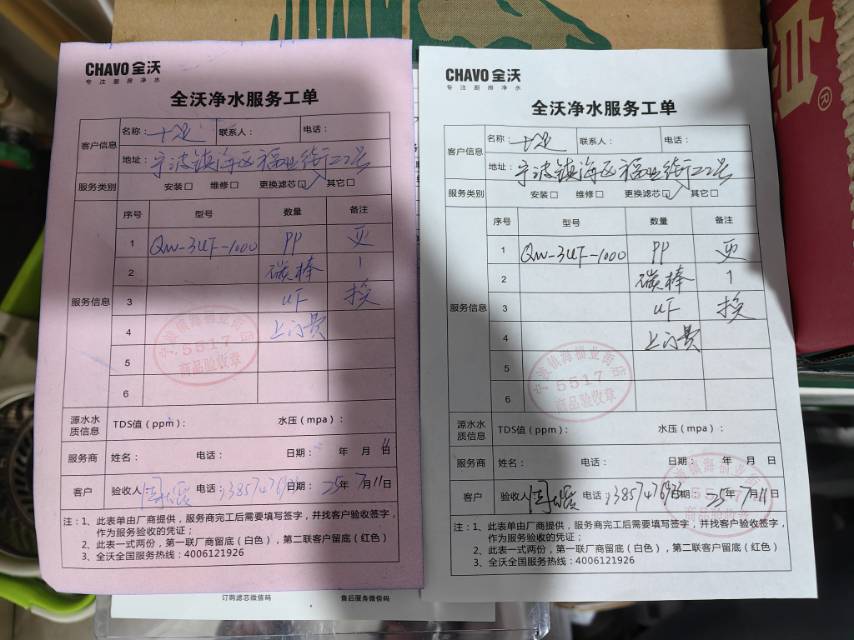 CHAVO 全沃
专注厨房净水
全沃净水服务工单
客户信息
名称：十足 联系人： 电话：
地址：宁波镇海区福业街22号
服务类别 安装□ 维修□ 更换滤芯☑ 其它□
服务信息
序号 型号 数量 备注
1 QW-3UF-1000 PP 更
2 碳棒 1
3 UF 换
4 上门费
5
6
5517
商品验收章
源水水质信息 TDS值（ppm）： 水压（mpa）：
服务商 姓名： 电话： 日期： 年 月 日
客户 验收人 电话 日期： 25年7月11日
注：1、此表单由厂商提供，服务商完工后需要填写签字，并找客户验收签字，
作为服务验收的凭证；
2、此表一式两份，第一联厂商留底（白色），第二联客户留底（红色）
3、全沃全国服务热线：4006121926
订购滤芯微信码 售后服务微信码
CHAVO 全沃
专注厨房净水
全沃净水服务工单
客户信息
名称：十足 联系人： 电话：
地址：宁波镇海区福业街22号
服务类别 安装□ 维修□ 更换滤芯☑ 其它□
服务信息
序号 型号 数量 备注
1 QW-3UF-1000 PP 更
2 碳棒 1
3 UF 换
4 上门费
5
6
5517
商品验收章
源水水质信息 TDS值（ppm）： 水压（mpa）：
服务商 姓名： 电话： 日期： 年 月 日
客户 验收人 电话 日期： 25年7月11日
注：1、此表单由厂商提供，服务商完工后需要填写签字，并找客户验收签字，
作为服务验收的凭证；
2、此表一式两份，第一联厂商留底（白色），第二联客户留底（红色）
3、全沃全国服务热线：4006121926